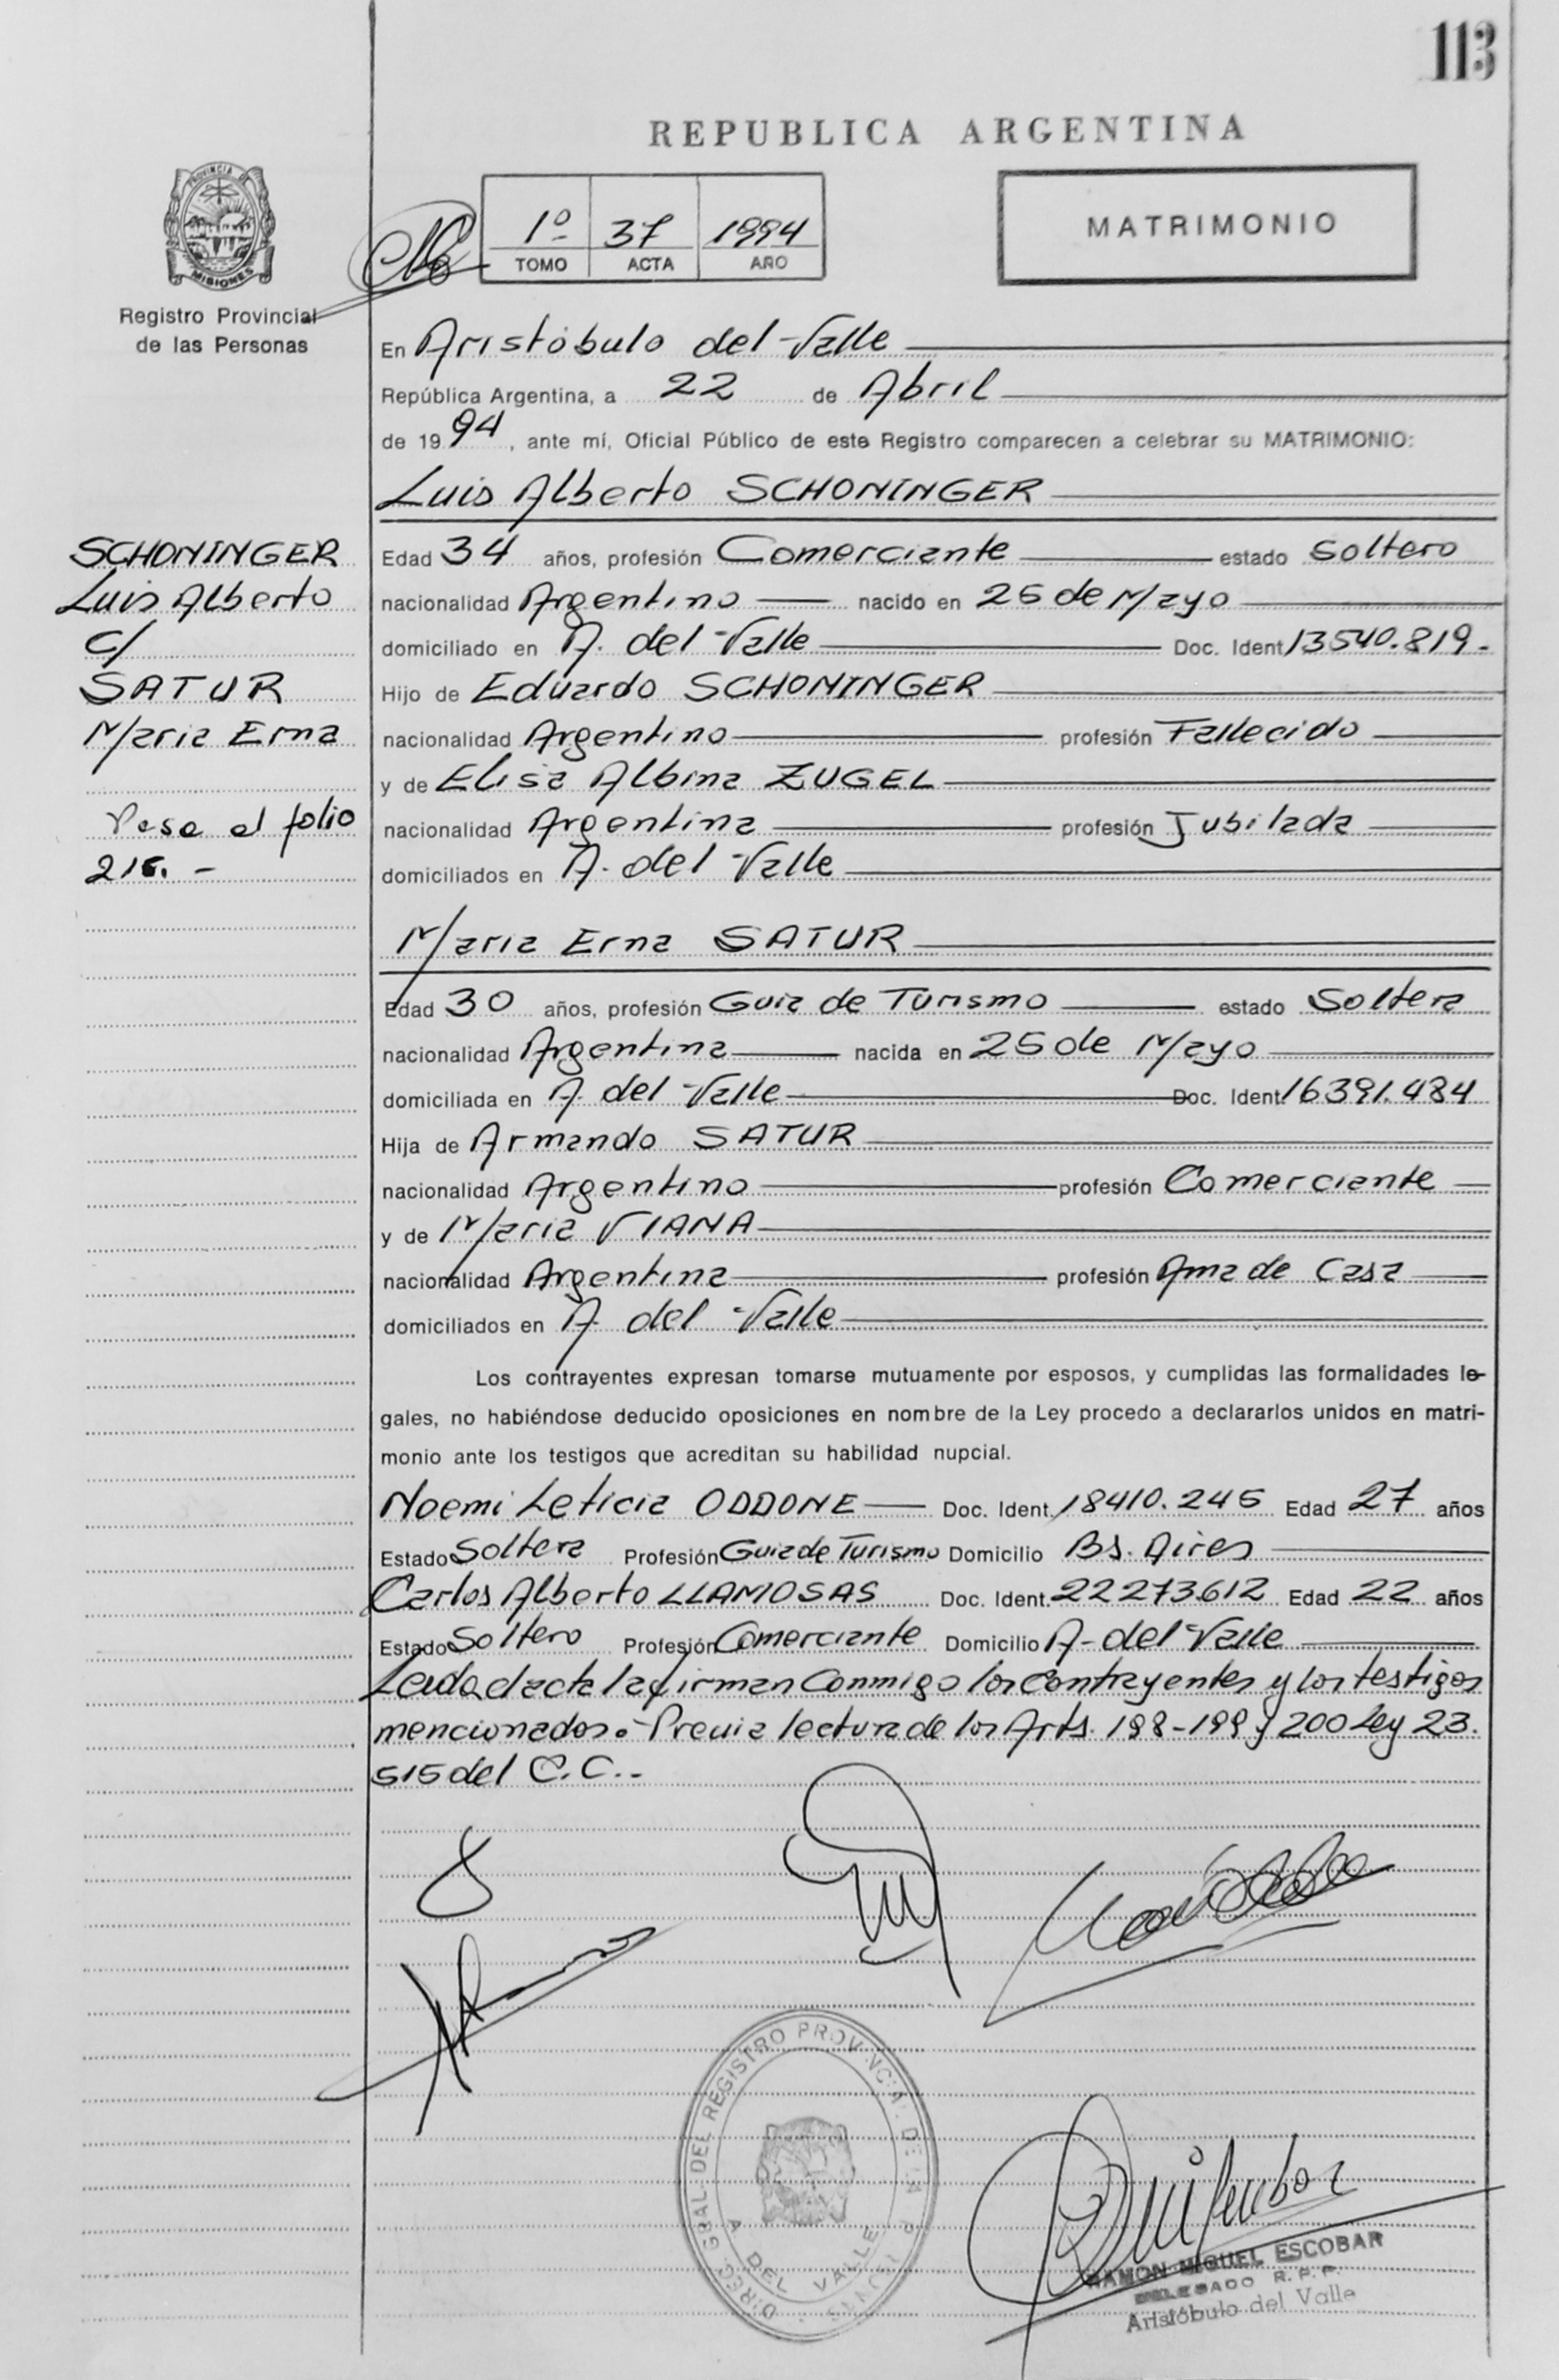 113
REPUBLICA ARGENTINA
PROVINCIA DE
MISIONES
Registro Provincial
de las Personas
1º 37 1994
TOMO ACTA AÑO
MATRIMONIO
En Aristóbulo del Valle
República Argentina, a 22 de Abril
de 1994, ante mí, Oficial Público de este Registro comparecen a celebrar su MATRIMONIO:
Luis Alberto SCHONINGER
SCHONINGER
Luis Alberto
C/
SATUR
Maria Erna
Pasa al folio
216. -
Edad 34 años, profesión Comerciante estado Soltero
nacionalidad Argentino nacido en 25 de Mayo
domiciliado en A. del Valle Doc. Ident 13540.819.
Hijo de Eduardo SCHONINGER
nacionalidad Argentino profesión Fallecido
y de Elisa Albina ZUGEL
nacionalidad Argentina profesión Jubilada
domiciliados en A. del Valle
Maria Erna SATUR
Edad 30 años, profesión Guia de Turismo estado Soltera
nacionalidad Argentina nacida en 25 de Mayo
domiciliada en A. del Valle Doc. Ident. 16391.484
Hija de Armando SATUR
nacionalidad Argentino profesión Comerciante
y de Maria VIANA
nacionalidad Argentina profesión Ama de Casa
domiciliados en A. del Valle
Los contrayentes expresan tomarse mutuamente por esposos, y cumplidas las formalidades le-
gales, no habiéndose deducido oposiciones en nombre de la Ley procedo a declararlos unidos en matri-
monio ante los testigos que acreditan su habilidad nupcial.
Noemi Leticia ODDONE Doc. Ident. 18410.245 Edad 27 años
Estado Soltera Profesión Guia de Turismo Domicilio Bs. Aires
Carlos Alberto LLAMOSAS Doc. Ident. 22273612 Edad 22 años
Estado Soltero Profesión Comerciante Domicilio A. del Valle
Leida el acta la firman Conmigo los Contrayentes y los testigos
mencionados. - Previa lectura de los Arts. 198-199 y 200 Ley 23.
515 del C.C. -
DIREC. GRAL. DEL REGISTRO PROVINCIAL DE LA
A. DEL VALLE
RAMON MIGUEL ESCOBAR
DELEGADO R.P.P.
Aristóbulo del Valle